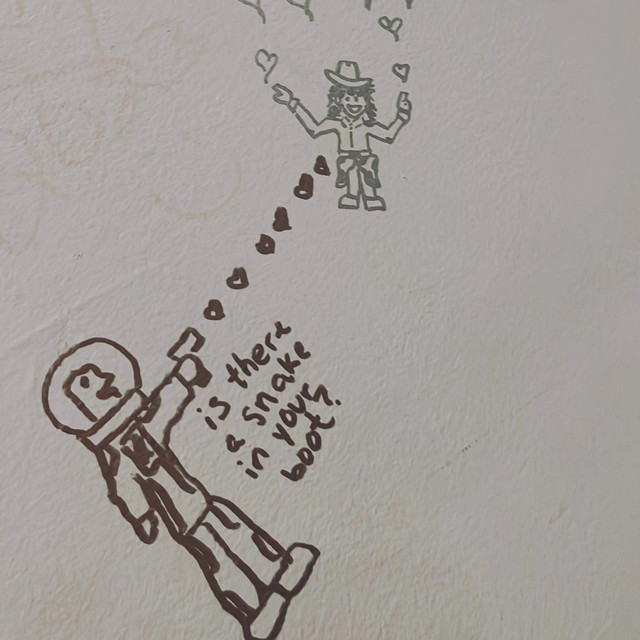 is there
a snake
in your
boot?